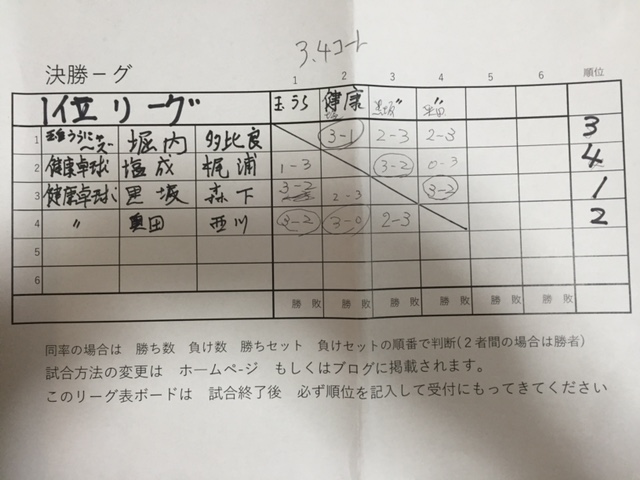 3.4コート
決勝－グ
1 2 3 4 5 6 順位
1位リーグ 玉うら 健康 黒坂〃 〃
1 堀内 多比良 3-1 2-3 2-3 3
2 健康卓球 塩成 梶浦 1-3 3-2 0-3 4
3 健康卓球 黒坂 森下 3-2 2-3 3-2 1
4 〃 奥田 西川 3-2 3-0 2-3 2
5
6
勝 敗 勝 敗 勝 敗 勝 敗 勝 敗 勝 敗
同率の場合は 勝ち数 負け数 勝ちセット 負けセットの順番で判断(２者間の場合は勝者)
試合方法の変更は ホームページ もしくはブログに掲載されます。
このリーグ表ボードは 試合終了後 必ず順位を記入して受付にもってきてください